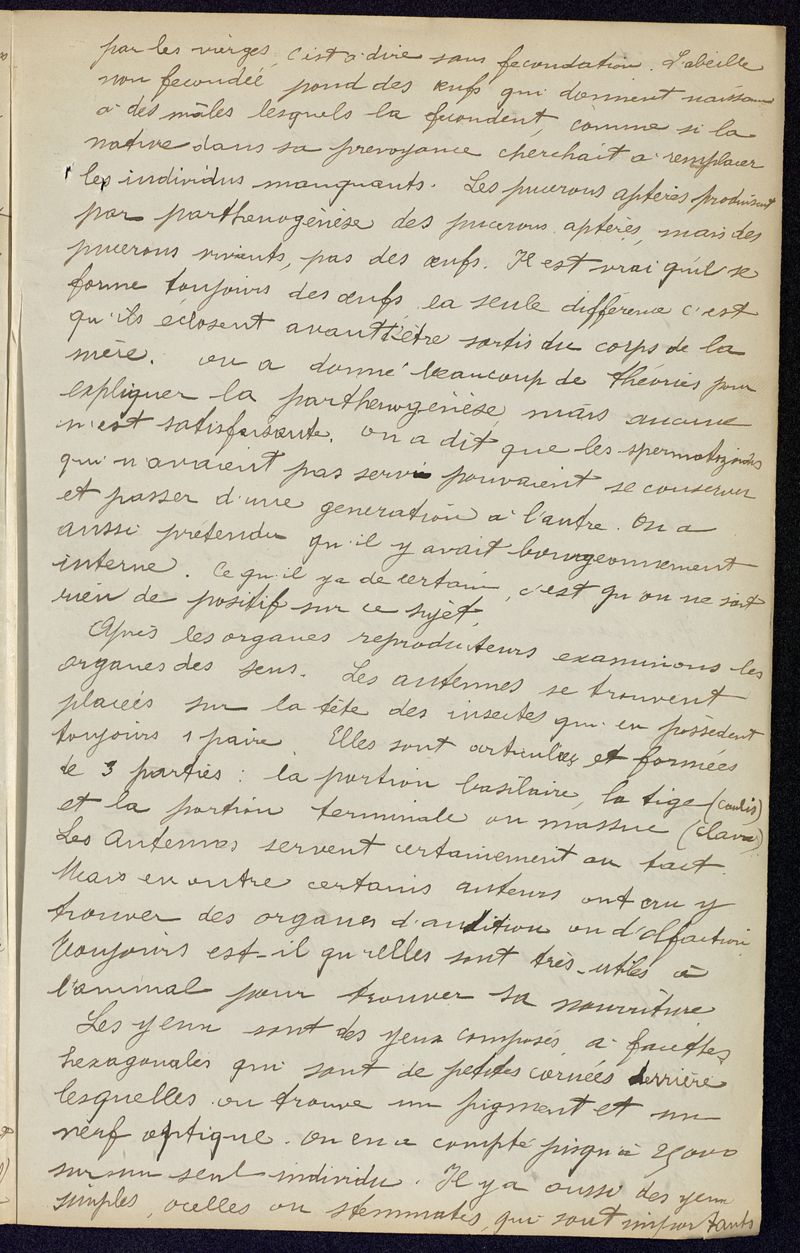 par les vierges, c'est à dire sans fecondation. L'abeille
non fecondée pond des œufs qui donnent naissance
à des mâles lesquels la fecondent, comme si la
nature dans sa prevoyance cherchait a remplacer
les individus manquants. Les pucerons aptères produisent
par parthenogénèse des pucerons aptères, mais des
pucerons vivants, pas des œufs. Il est vrai qu'il se
forme toujours des œufs la seule différence c'est
qu'ils éclosent avant d'être sortis du corps de la
mère. On a donné beaucoup de théories pour
expliquer la parthenogénèse, mais aucune
n'est satisfaisante. On a dit que les spermatozoides
qui n'avaient pas servi pouvaient se conserver
et passer d'une generation à l'autre. On a
aussi pretendu qu'il y avait bourgeonnement
interne. Ce qu'il y a de certain, c'est qu'on ne sait
rien de positif sur ce sujet.
Après les organes reproducteurs examinons les
organes des sens. Les antennes se trouvent
placées sur la tête des insectes qui en possèdent
toujours 1 paire. Elles sont articulées et formées
de 3 parties : la portion basilaire, la tige (caulis)
et la portion terminale ou massue (clava).
Les Antennes servent certainement au tact.
Mais en outre certains auteurs ont cru y
trouver des organes d'audition ou d'olfaction.
Toujours est-il qu'elles sont très-utiles à
l'animal pour trouver sa nourriture
Les yeux sont des yeux composés, à facettes
hexagonales qui sont de petites cornées derrière
lesquelles on trouve un pigment et un
nerf optique. On en a compté jusqu'à 25000
sur un seul individu. Il y a aussi des yeux
simples, ocelles ou stemmates, qui sont importants